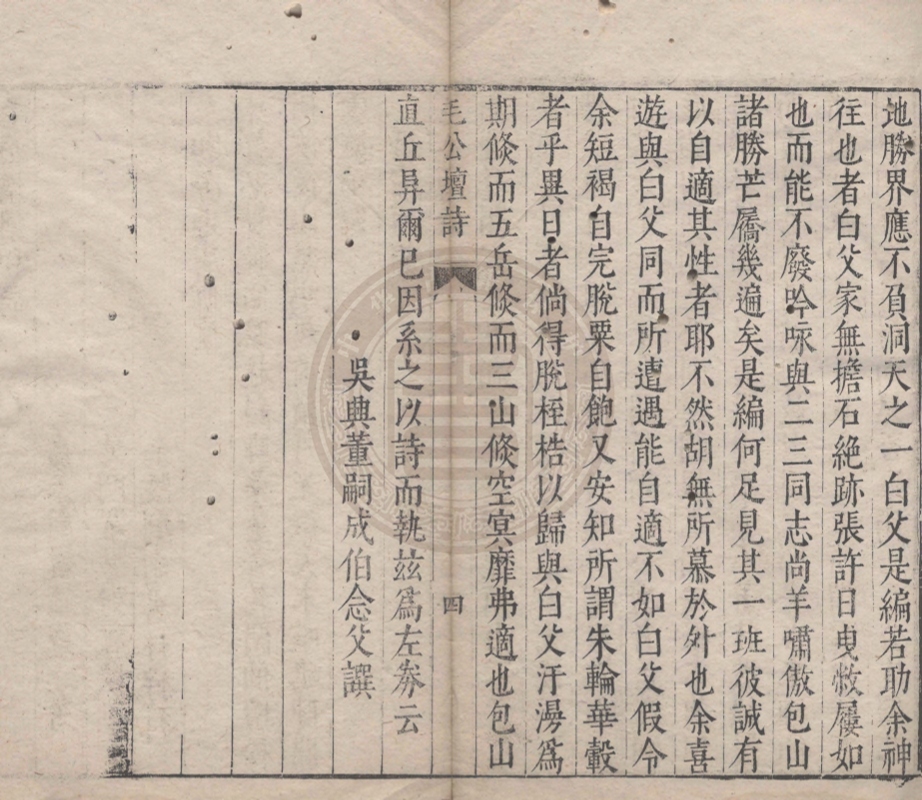 地勝界應不負洞天之一白父是編若助余神
往也者白父家無擔石絶跡張許日曳敝屨如
也而能不廢吟咏與二三同志尚羊嘯傲包山
諸勝芒屩幾遍矣是編何足見其一班彼誠有
以自適其性者耶不然胡無所慕於外也余喜
遊與白父同而所遭遇能自適不如白父假令
余短褐自完脫粟自飽又安知所謂朱輪華轂
者乎異日者倘得脫桎梏以歸與白父汗漫爲
期倏而五岳倏而三山倏空冥靡弗適也包山
毛公壇詩
四
直丘垤爾已因系之以詩而執茲爲左券云
吳興董嗣成伯念父譔